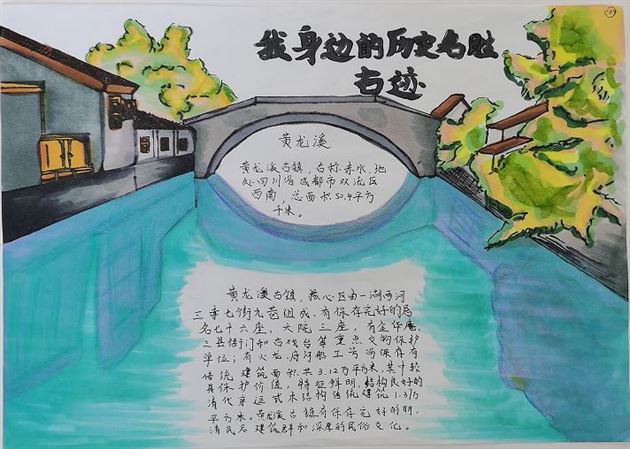 我身边的历史名胜
古迹
黄龙溪
黄龙溪古镇,古称赤水,地
处四川省成都市双流区
西南,总面积50.4平方
千米。
黄龙溪古镇,核心区由一湖两河
三寺七街九巷组成,有保存完好的民
居七十六座,大院三座,有金华庵、
三县衙门和古戏台等重点文物保护
单位;有火龙、府河船工号
传统建筑面积共3.12万平方米,其中较
具保护价值,特征鲜明,结构良好的
清代穿逗式木结构传统建筑1.3万
平方米。黄龙溪古镇有保存完好的明、
清民居建筑群和深厚的民俗文化。